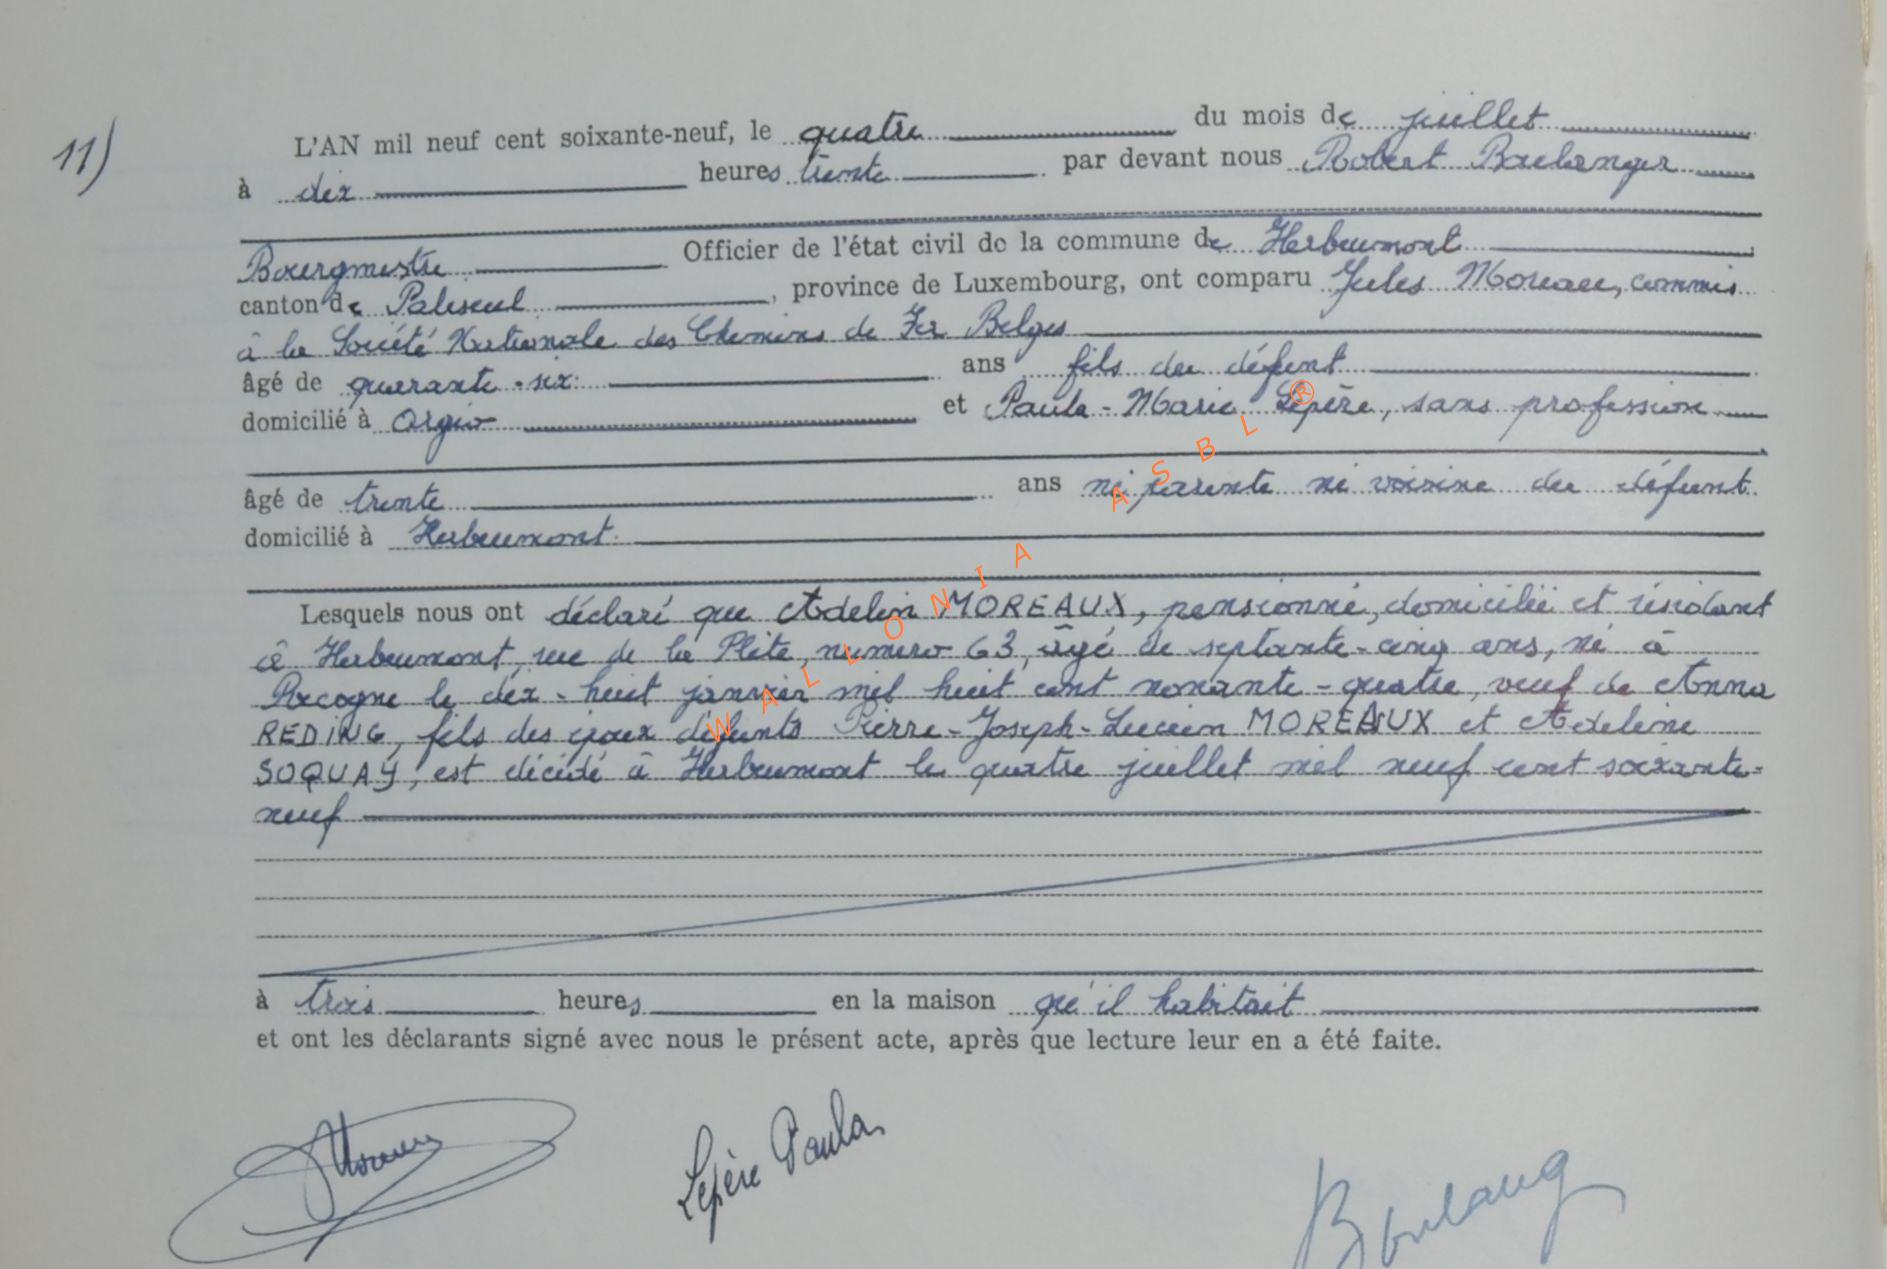 11)
L'AN mil neuf cent soixante-neuf, le quatre du mois de juillet
à dix heures trente par devant nous Robert Boulanger
Bourgmestre Officier de l'état civil de la commune de Herbeumont
canton de Paliseul, province de Luxembourg, ont comparu Jules Moreau, commis
à la Société Nationale des Chemins de Fer Belges
âgé de quarante-six ans fils du défunt
domicilié à Orgeo et Paula-Marie Lepère, sans profession
âgé de trente ans ni parente ni voisine du défunt
domicilié à Herbeumont.
Lesquels nous ont déclaré que Adelin MOREAUX, pensionné, domicilié et résidant
à Herbeumont, rue de la Plate, numéro 63, âgé de septante-cinq ans, né à
Recogne le dix-huit janvier mil huit cent nonante-quatre, veuf de Anna
REDING, fils des époux défunts Pierre-Joseph-Lucien MOREAUX et Adeline
SOQUAY, est décédé à Herbeumont le quatre juillet mil neuf cent soixante-
neuf
à trois heures en la maison qu'il habitait
et ont les déclarants signé avec nous le présent acte, après que lecture leur en a été faite.
Lepère Paula
WALLONIA ASBL ®